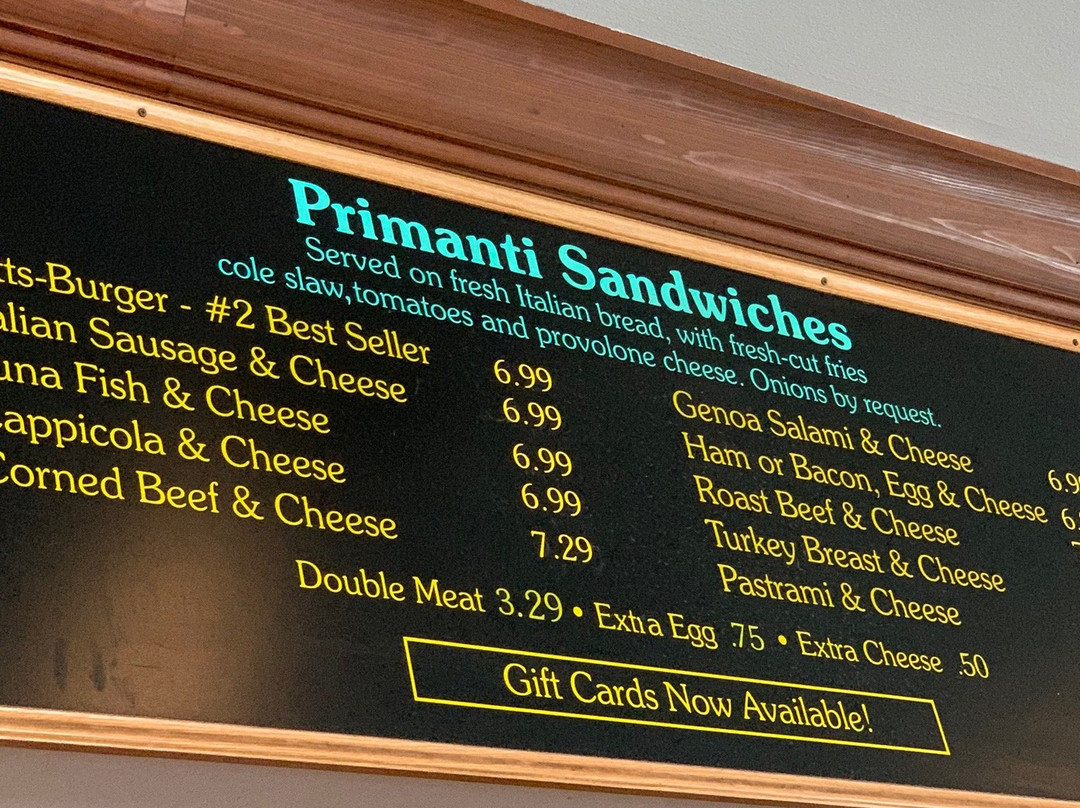 Primanti Sandwiches
Served on fresh Italian bread, with fresh-cut fries
cole slaw, tomatoes and provolone cheese. Onions by request.
tts-Burger - #2 Best Seller 6.99
alian Sausage & Cheese 6.99
una Fish & Cheese 6.99
appicola & Cheese 6.99
Corned Beef & Cheese 7.29
Genoa Salami & Cheese 6.9
Ham or Bacon, Egg & Cheese 6.
Roast Beef & Cheese
Turkey Breast & Cheese
Pastrami & Cheese
Double Meat 3.29 • Extra Egg .75 • Extra Cheese .50
Gift Cards Now Available!